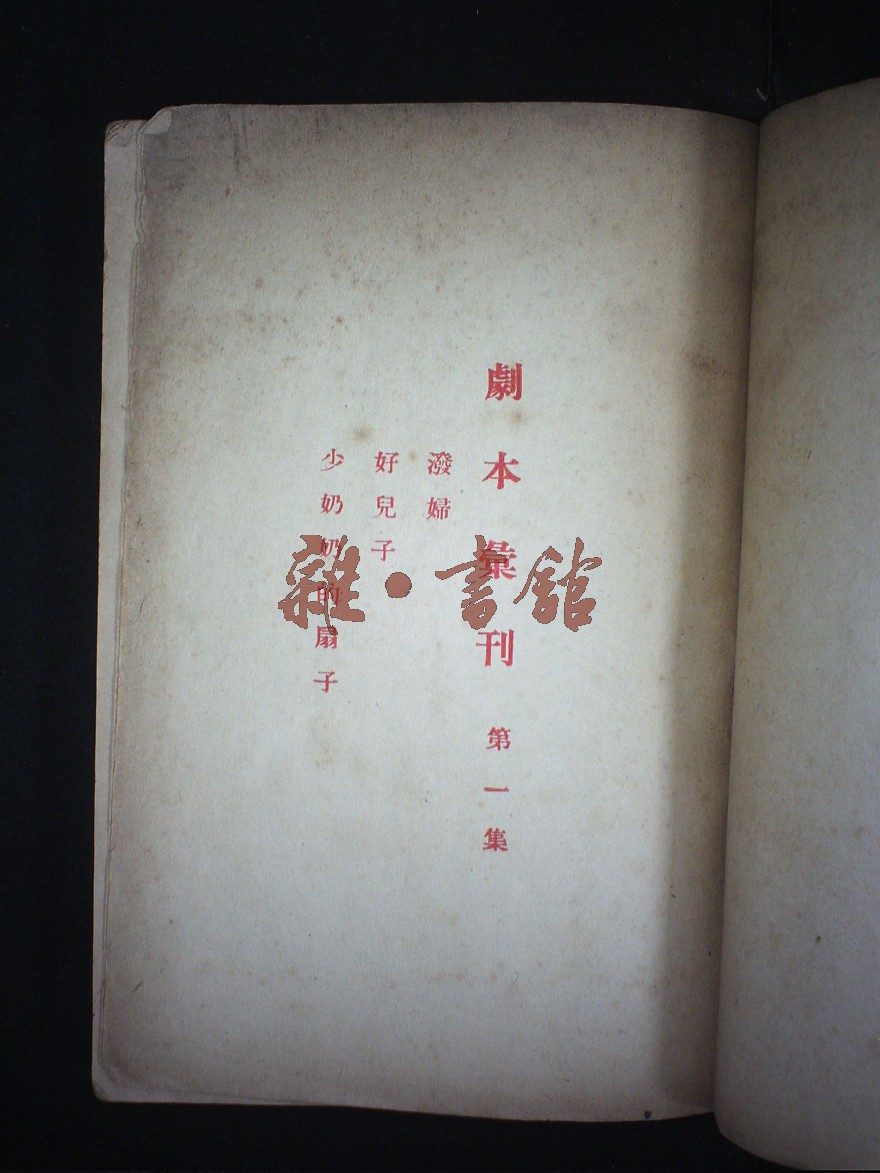 劇本彙刊 第一集
潑婦
好兒子
少奶奶的扇子
雜·書館